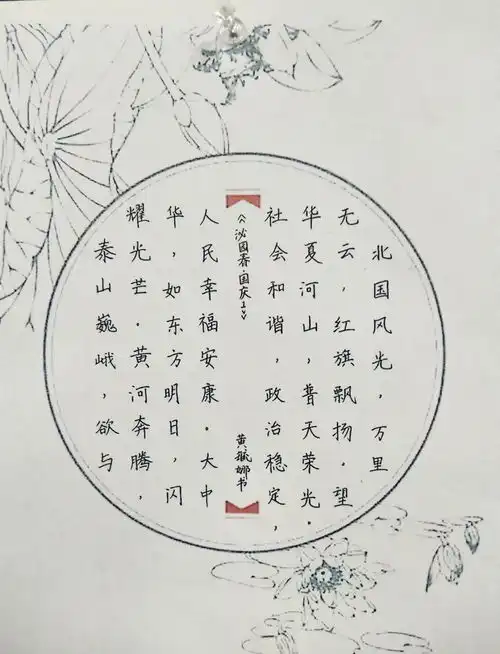 北国风光，万里
无云，红旗飘扬。望
华夏河山，普天荣光。
社会和谐，政治稳定，
《沁园春·国庆1》
黄娜书
人民幸福安康。大中
华，如东方明日，闪
耀光芒。黄河奔腾，
泰山巍峨，欲与